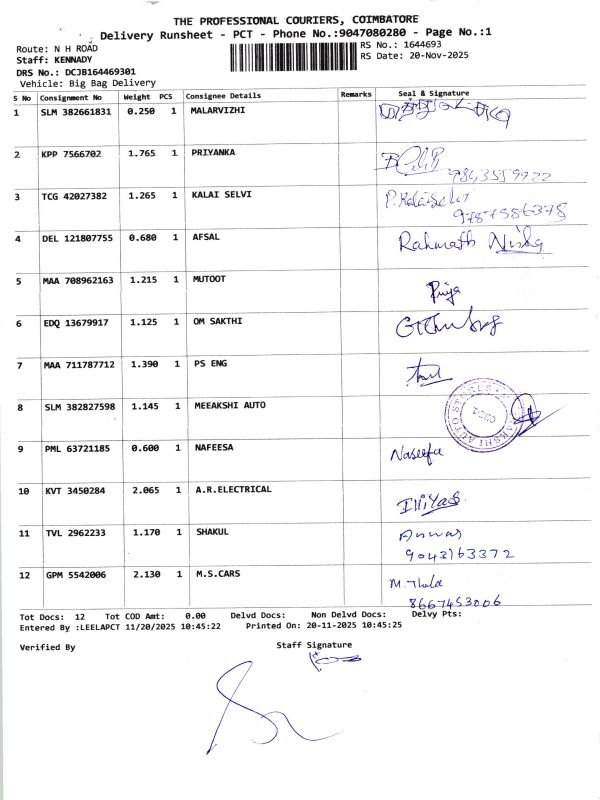 THE PROFESSIONAL COURIERS, COIMBATORE
Delivery Runsheet - PCT - Phone No.:9047080280 - Page No.:1
Route: N H ROAD
RS No.: 1644693
Staff: KENNADY
RS Date: 20-Nov-2025
DRS No.: DCJB164469301
Vehicle: Big Bag Delivery
S No Consignment No Weight PCS Consignee Details Remarks Seal & Signature
1 SLM 382661831 0.250 1 MALARVIZHI
2 KPP 7566702 1.765 1 PRIYANKA
9843559922
3 TCG 42027382 1.265 1 KALAI SELVI P. Kalaiselvi
9787586378
4 DEL 121807755 0.680 1 AFSAL Rahmath Nisha
5 MAA 708962163 1.215 1 MUTOOT Priya
6 EDQ 13679917 1.125 1 OM SAKTHI
7 MAA 711787712 1.390 1 PS ENG
8 SLM 382827598 1.145 1 MEEAKSHI AUTO
9 PML 63721185 0.600 1 NAFEESA Naseefa
10 KVT 3450284 2.065 1 A.R.ELECTRICAL Illiyas
11 TVL 2962233 1.170 1 SHAKUL Anwas
9043163372
12 GPM 5542006 2.130 1 M.S.CARS
8667453006
Tot Docs: 12 Tot COD Amt: 0.00 Delvd Docs: Non Delvd Docs: Delvy Pts:
Entered By :LEELAPCT 11/20/2025 10:45:22 Printed On: 20-11-2025 10:45:25
Verified By Staff Signature